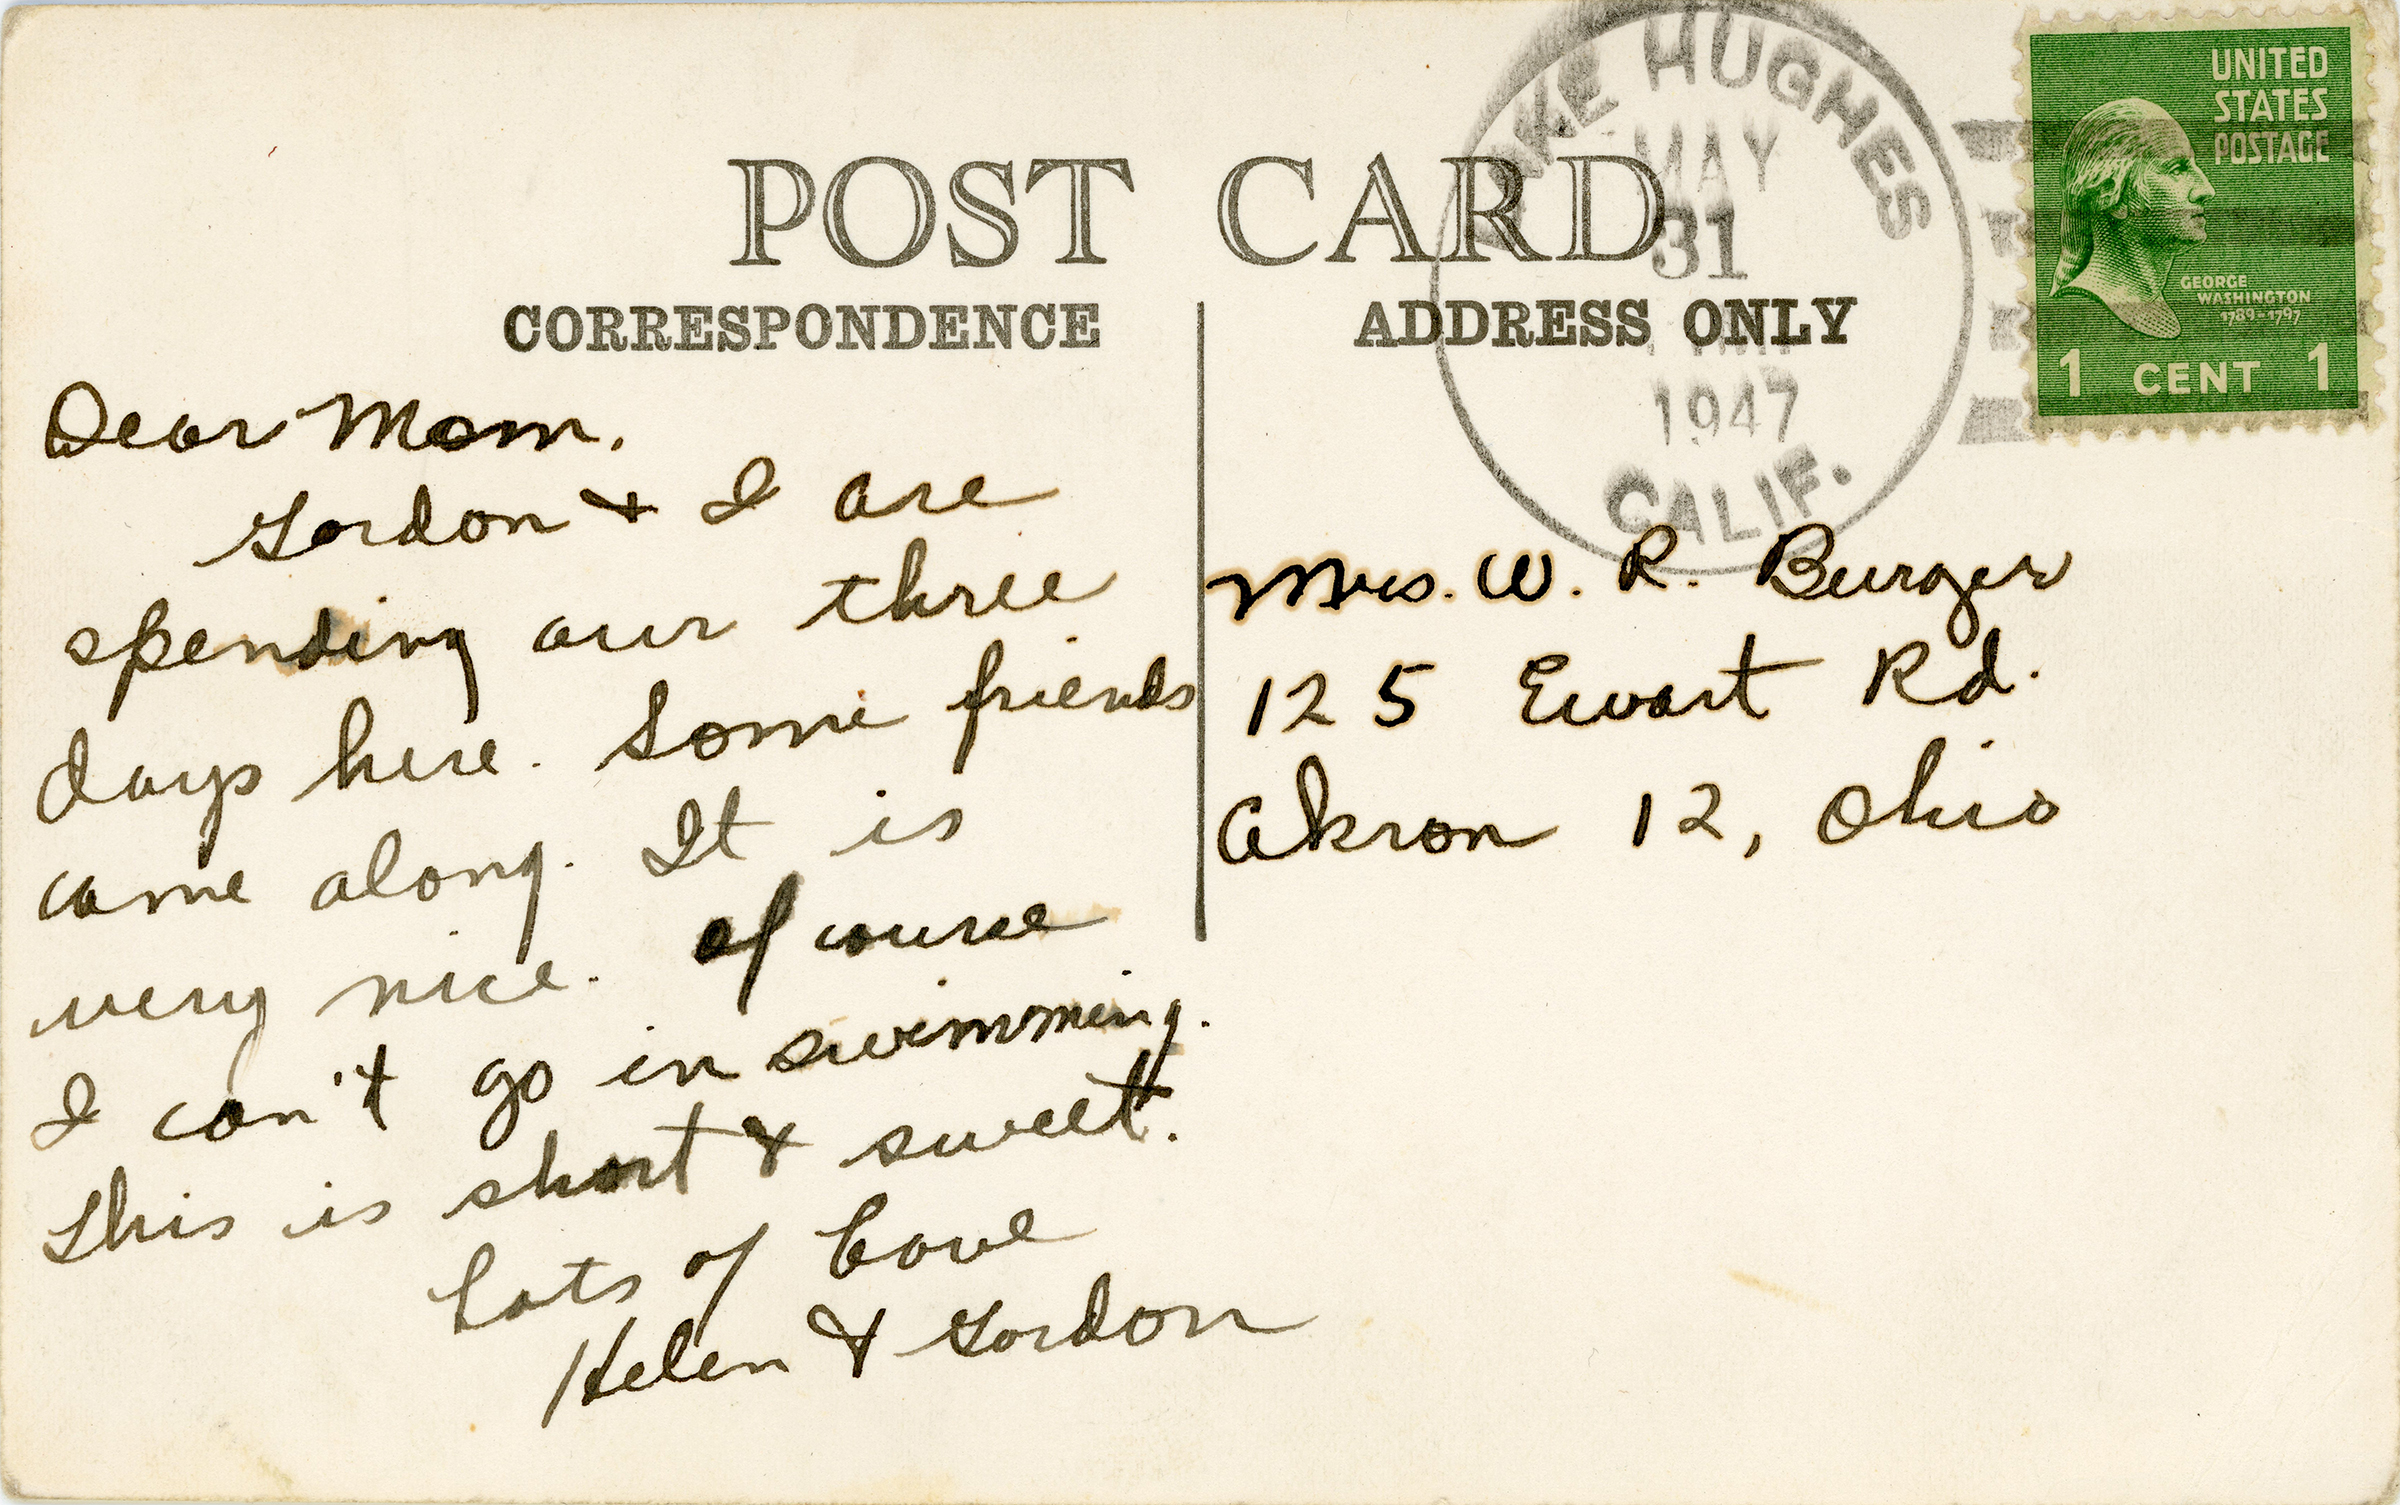 POST CARD
CORRESPONDENCE
Dear Mom.
Gordon & I are
spending our three
days here. Some friends
came along. It is
very nice. Of course
I can't go in swimming.
This is short & sweet.
Lots of Love
Helen & Gordon
ADDRESS ONLY
Mrs. W. R. Burger
125 Ewart Rd.
Akron 12, Ohio
LAKE HUGHES
MAY
31
1947
CALIF.
UNITED
STATES
POSTAGE
GEORGE
WASHINGTON
1789-1797
1 CENT 1